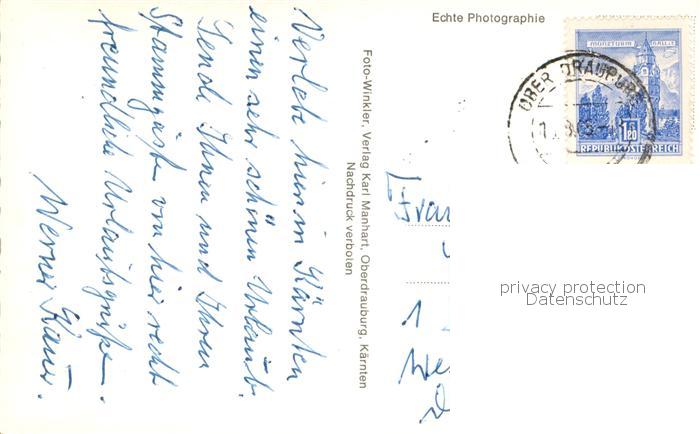 Echte Photographie
Verlebe hier in Kärnten
einen sehr schönen Urlaub.
Sende Ihnen und Ihren
Stammgäste von hier recht
freundliche Urlaubsgrüße.
Werner
Foto-Winkler, Verlag Karl Manhart, Oberdrauburg, Kärnten
Nachdruck verboten
MÜNZTURM HALL I. T.
1.50
REPUBLIK ÖSTERREICH
OBERDRAUBURG
Frau
1
privacy protection
Datenschutz